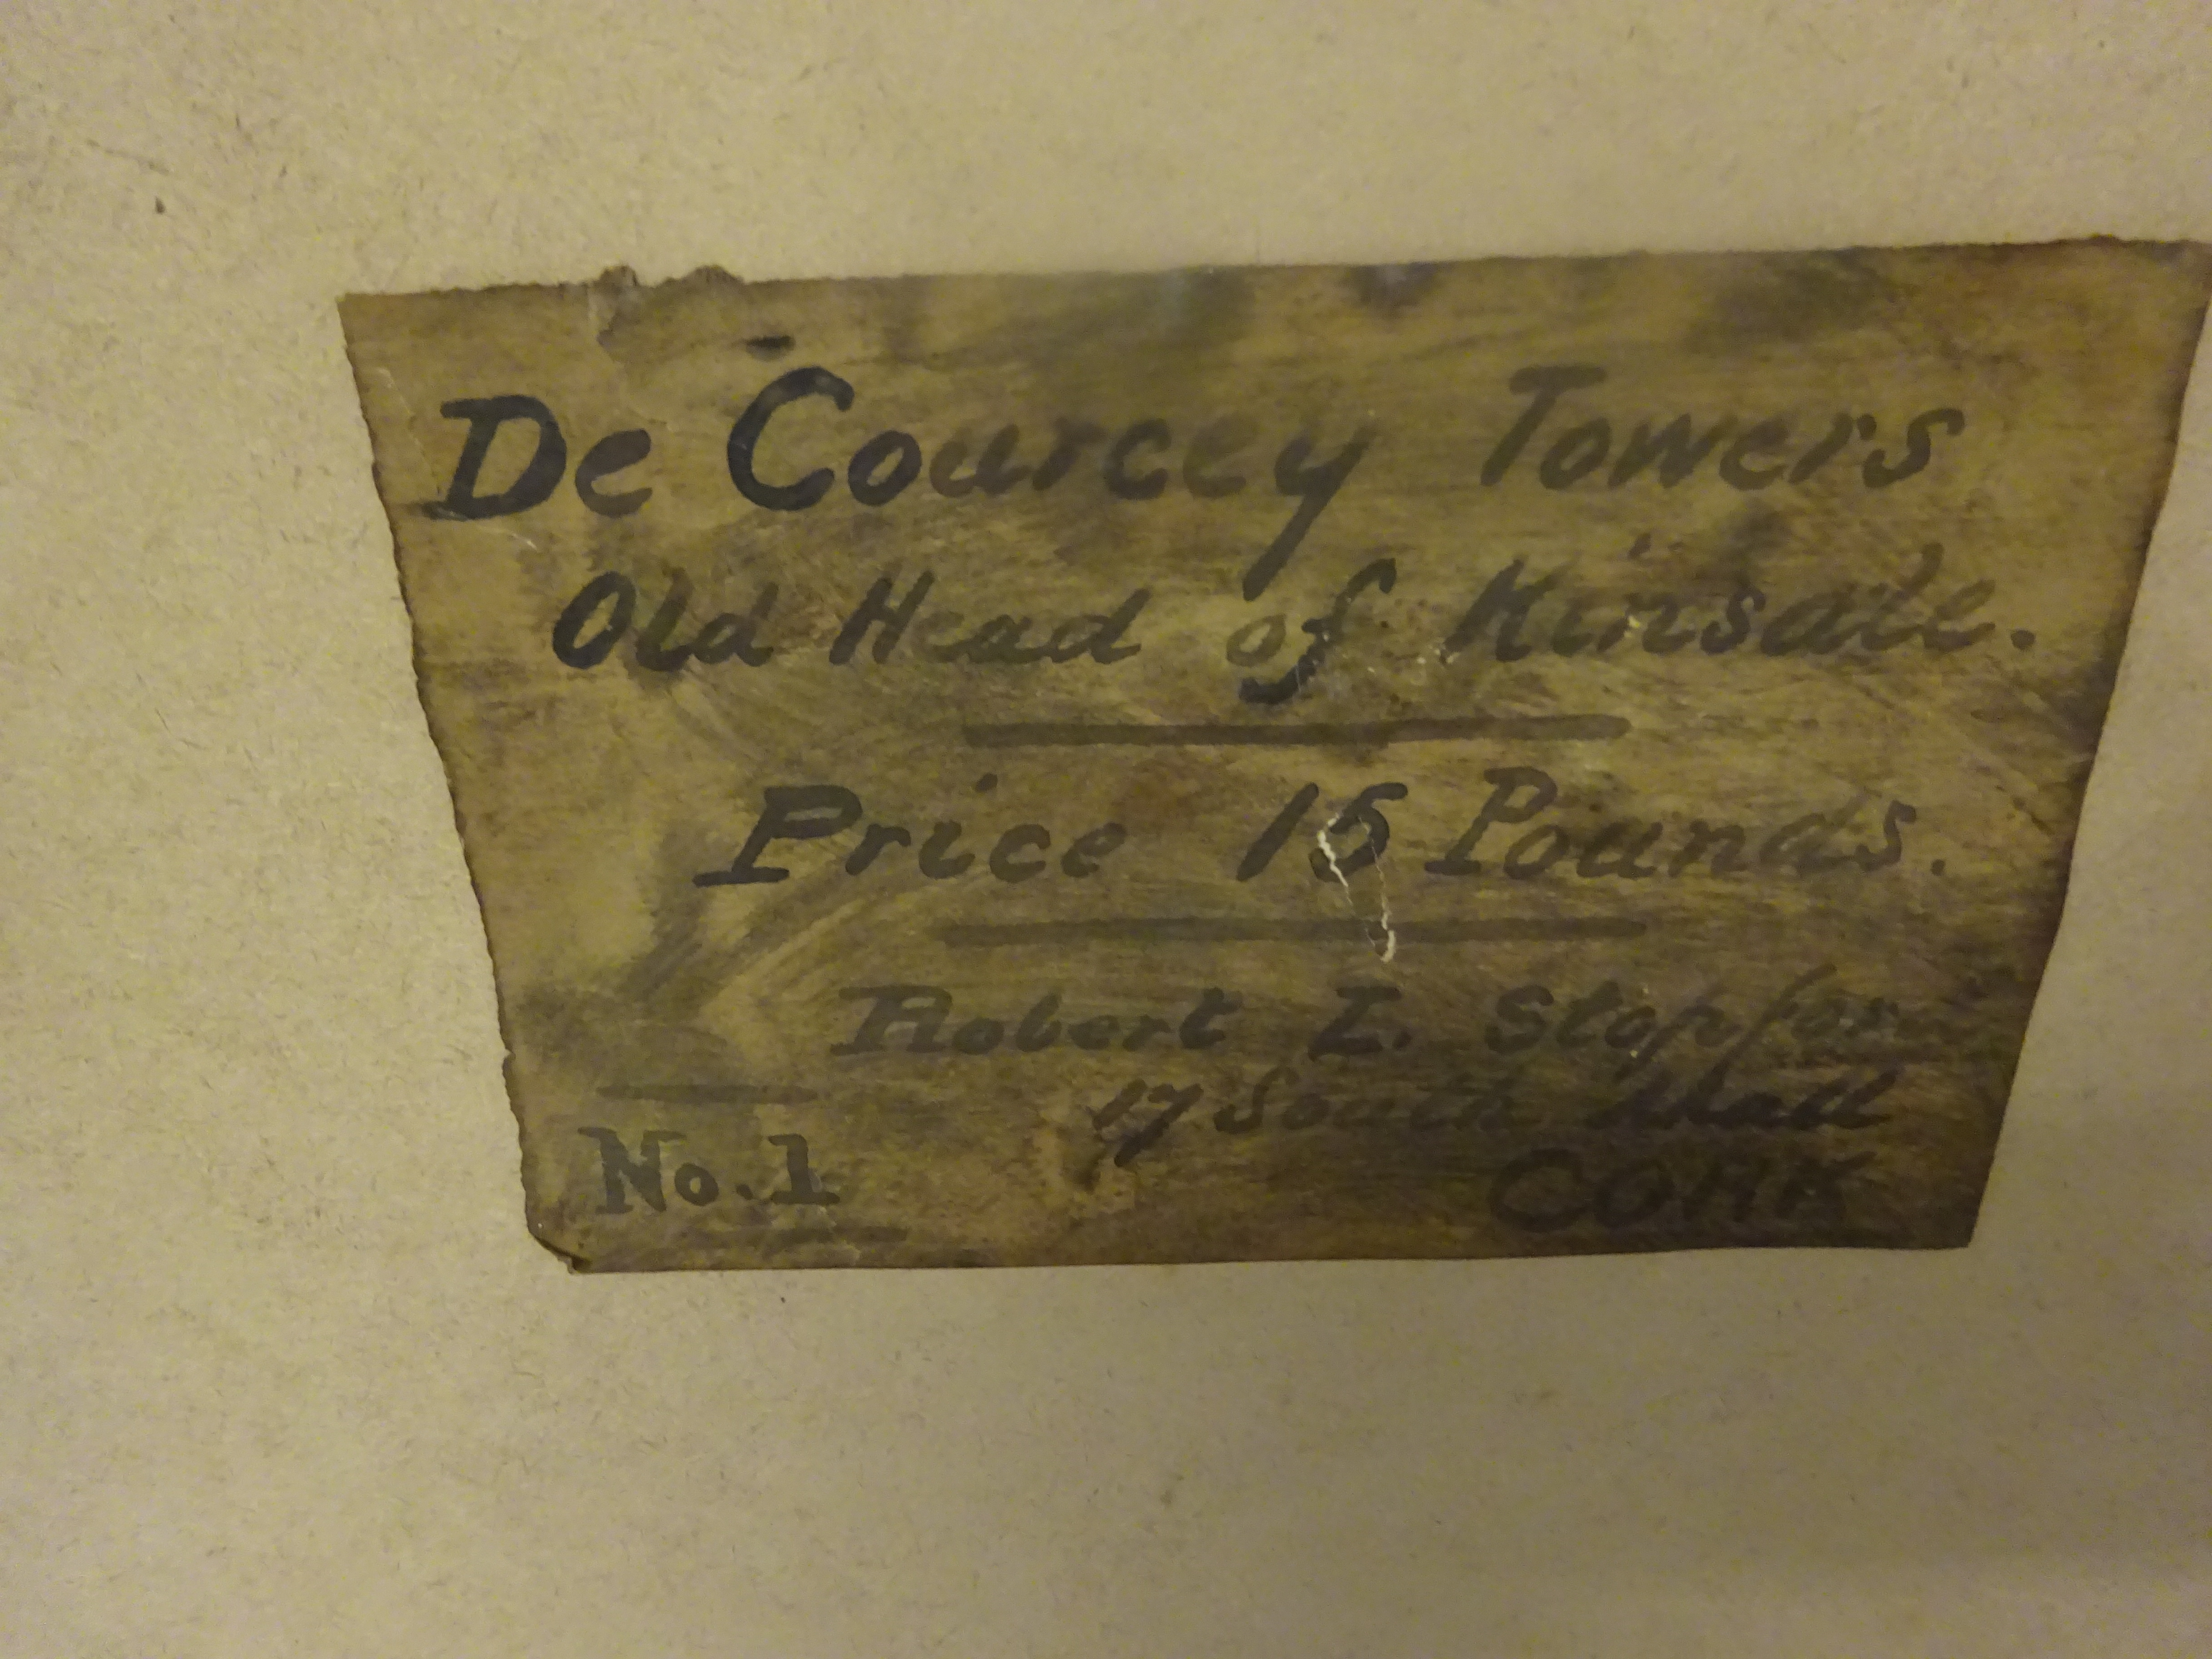 De Courcey Towers
Old Head of Kinsale.
Price 15 Pounds.
Robert L. Stopford
17 South Mall
CORK
No. 1